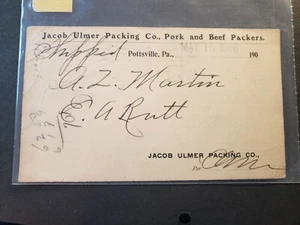 Jacob Ulmer Packing Co., Pork and Beef Packers.
Shipped Pottsville, Pa., 190
A. Z. Martin
E. A. Rutt
JACOB ULMER PACKING CO.,
Per